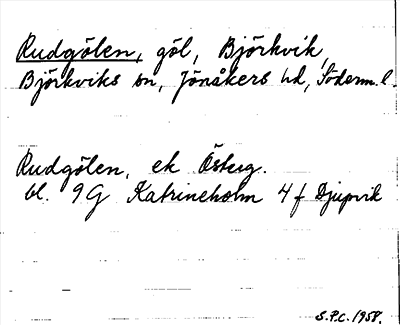 Rudgölen, göl, Björkvik,
Björkviks sn, Jönåkers hd, Söderm. l.
Rudgölen, ek Österg.
bl. 9G Katrineholm 4 f Djupvik
S.P.C. 1958.